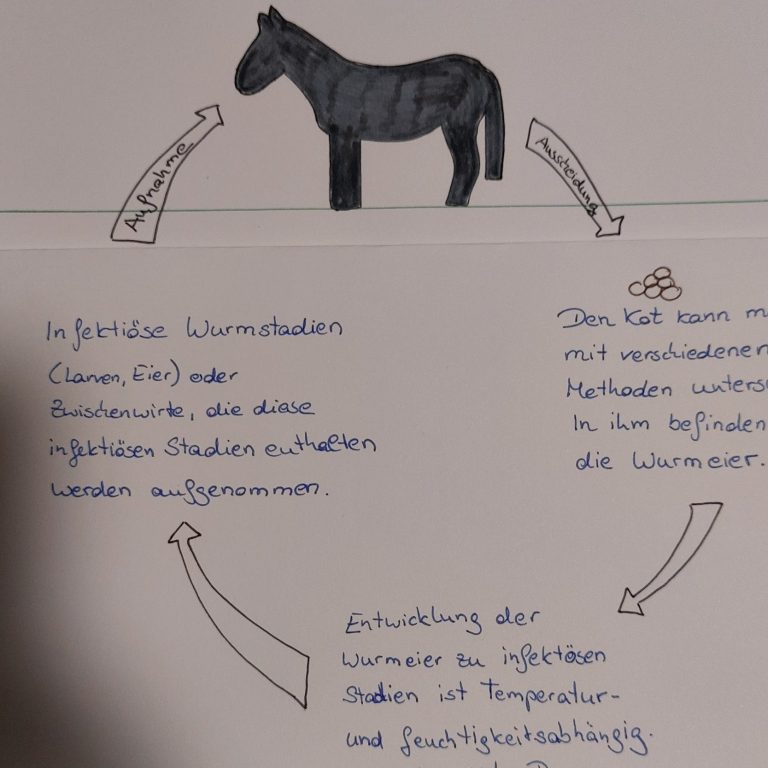 Aufnahme
Ausscheidung
Infektiöse Wurmstadien
(Larven, Eier) oder
Zwischenwirte, die diese
infektiösen Stadien enthalten
werden aufgenommen.
Den Kot kann m
mit verschiedenen
Methoden unters
In ihm befinden
die Wurmeier.
Entwicklung der
Wurmeier zu infektösen
Stadien ist Temperatur-
und feuchtigkeitsabhängig.